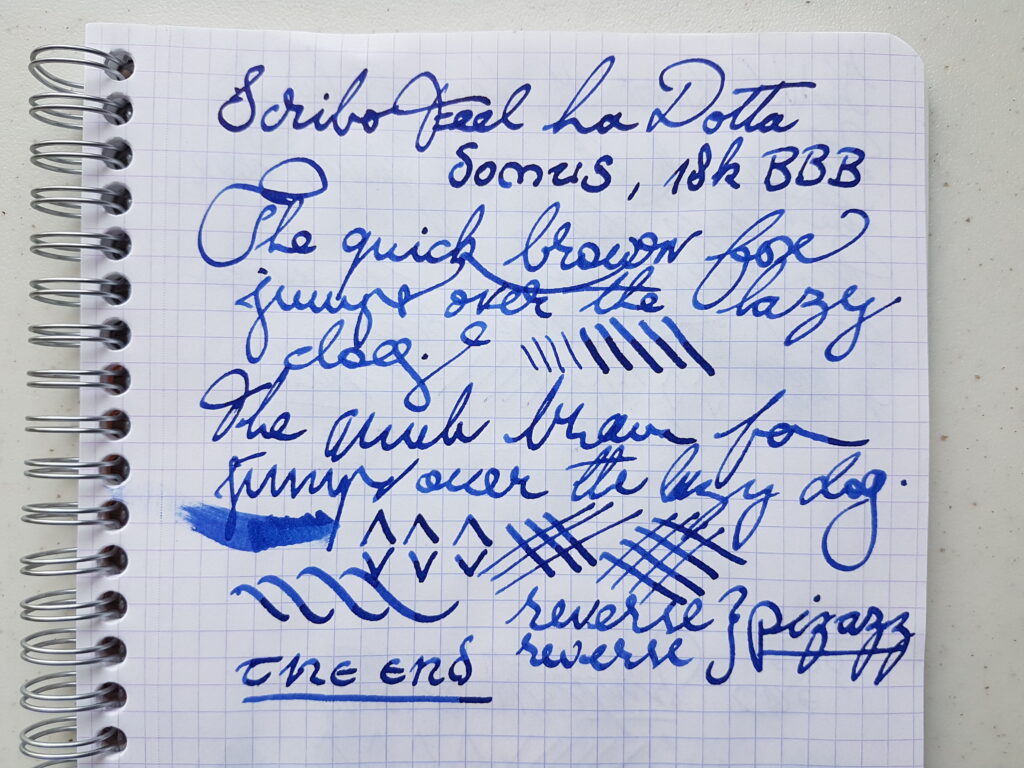 Scribo Feel La Dotta
Domus, 18k BBB
The quick brown fox
jumps over the lazy
dog.
The quick brown fox
jumps over the lazy dog.
reverse } pizazz
reverse
THE END